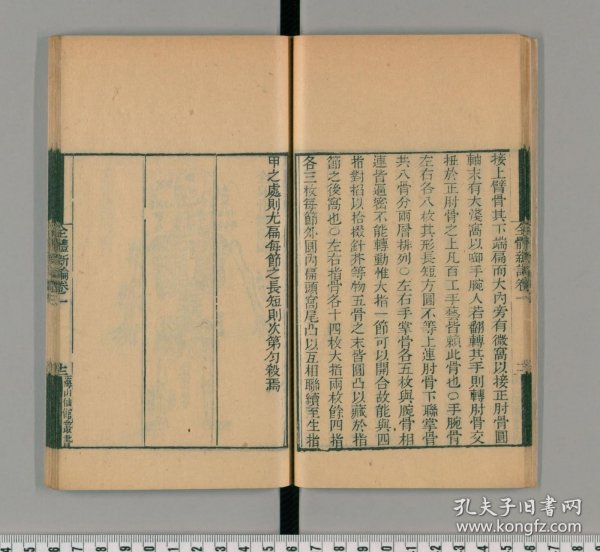 接上臂骨其下端扁而大內旁有微窩以接正肘骨圓
軸末有大淺窩以啣手腕人若翻轉其手則轉肘骨交
扭於正肘骨之上凡百工手藝皆賴此骨也〇手腕骨
左右各八枚其形長短方圓不等上連肘骨下聯掌骨
共八骨分兩層排列〇左右手掌骨各五枚與腕骨相
連皆逼密不能轉動惟大指一節可以開合故能與四
指對招以拾掇針芥等物五骨之末皆圓凸以藏於指
節之後窩也〇左右指骨各十四枚大指兩枚餘四指
各三枚每節外圓內偏頭窩尾凸以互相聯續至生指
甲之處則尤扁每節之長短則次第勻殺焉
全體新論卷一
全體新論卷一
海山仙館叢書
孔夫子旧书网
www.kongfz.com